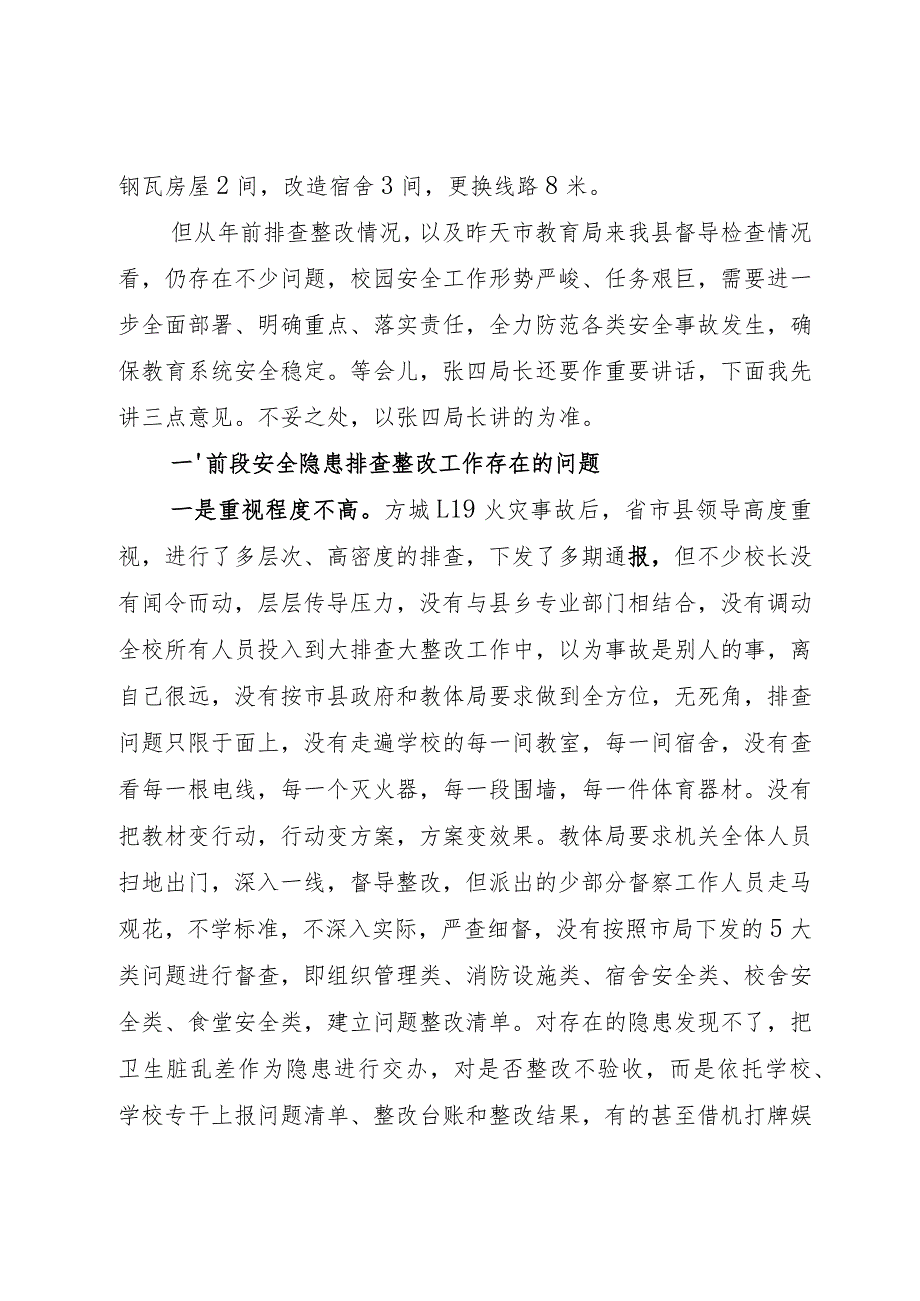 钢瓦房屋2间，改造宿舍3间，更换线路8米。
但从年前排查整改情况，以及昨天市教育局来我县督导检查情况
看，仍存在不少问题，校园安全工作形势严峻、任务艰巨，需要进一
步全面部署、明确重点、落实责任，全力防范各类安全事故发生，确
保教育系统安全稳定。等会儿，张四局长还要作重要讲话，下面我先
讲三点意见。不妥之处，以张四局长讲的为准。
一'前段安全隐患排查整改工作存在的问题
一是重视程度不高。方城L19火灾事故后，省市县领导高度重
视，进行了多层次、高密度的排查，下发了多期通报，但不少校长没
有闻令而动，层层传导压力，没有与县乡专业部门相结合，没有调动
全校所有人员投入到大排查大整改工作中，以为事故是别人的事，离
自己很远，没有按市县政府和教体局要求做到全方位，无死角，排查
问题只限于面上，没有走遍学校的每一间教室，每一间宿舍，没有查
看每一根电线，每一个灭火器，每一段围墙，每一件体育器材。没有
把教材变行动，行动变方案，方案变效果。教体局要求机关全体人员
扫地出门，深入一线，督导整改，但派出的少部分督察工作人员走马
观花，不学标准，不深入实际，严查细督，没有按照市局下发的5大
类问题进行督查，即组织管理类、消防设施类、宿舍安全类、校舍安
全类、食堂安全类，建立问题整改清单。对存在的隐患发现不了，把
卫生脏乱差作为隐患进行交办，对是否整改不验收，而是依托学校、
学校专干上报问题清单、整改台账和整改结果，有的甚至借机打牌娱